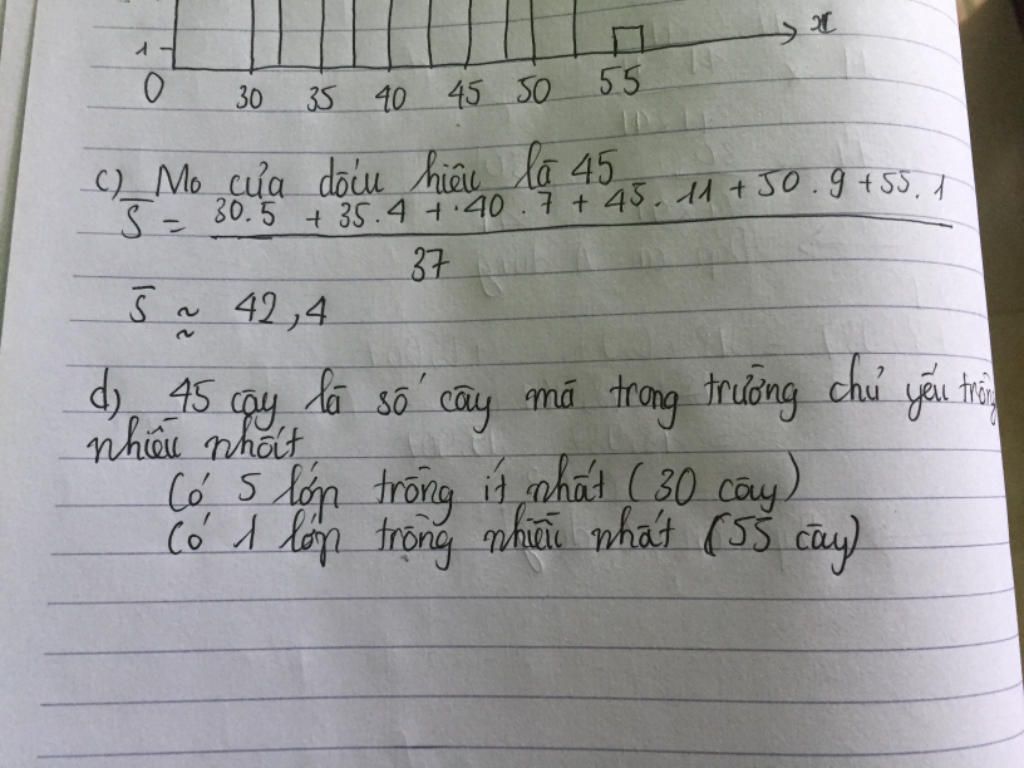 1
x
0 30 35 40 45 50 55
c) Mo của dấu hiệu là 45
S̄ = 30.5 + 35.4 + .40 . 7 + 45 . 11 + 50 . 9 + 55 . 1
37
S̄ ≈ 42,4
d) 45 cây là số cây mà trong trường chủ yếu trồng
nhiều nhất
Có 5 lớp trồng ít nhất (30 cây)
Có 1 lớp trồng nhiều nhất (55 cây)